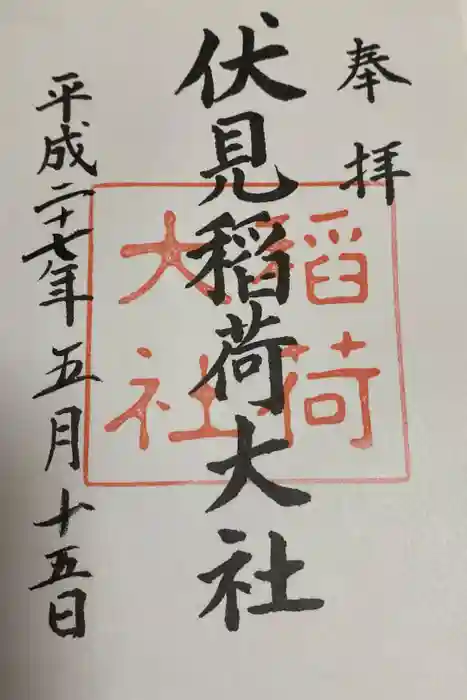 奉拝
伏見稲荷大社
稲荷
大社
平成二十七年五月十五日